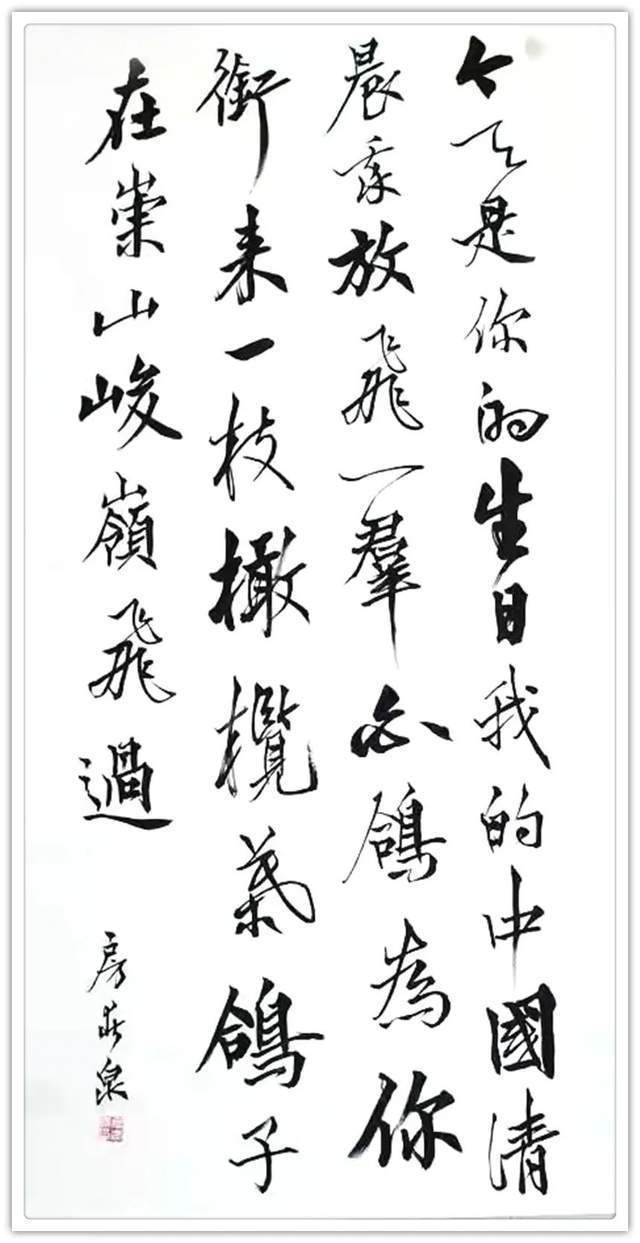 今天是你的生日我的中國清
晨我放飛一羣白鴿為你
銜来一枝橄欖葉鴿子
在崇山峻嶺飛過
房泉